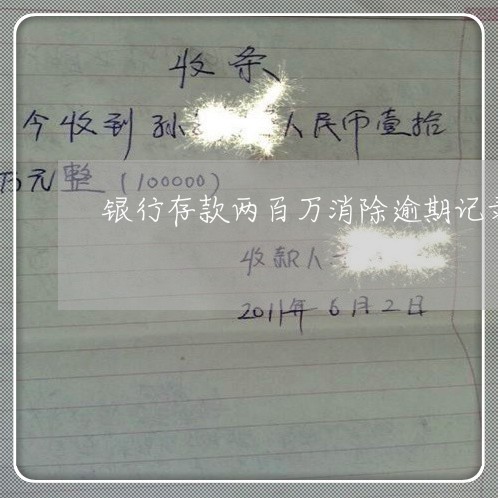 收条
今收到孙 人民币壹拾
万元整（100000）
银行存款两百万消除逾期记
收款人
2011年6月2日